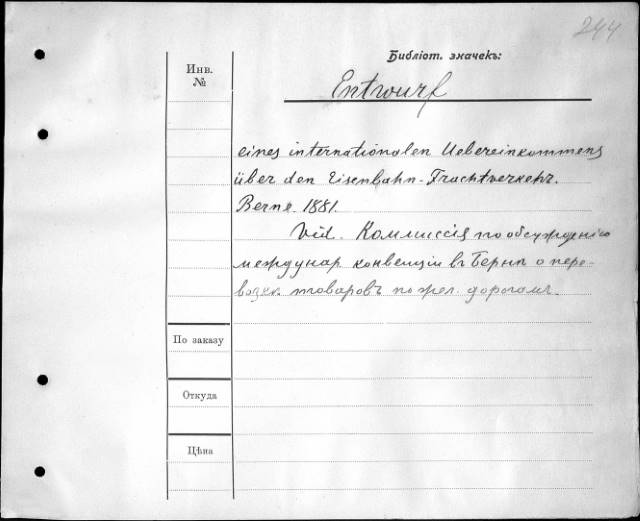 244
Библіот. значекъ:
Инв.
№
Entwurf
eines internationalen Uebereinkommens
über den Eisenbahn-Frachtverkehr.
Berne. 1881.
Vid. Коммиссія по обсужденію
междунар конвенціи въ Бернѣ о пере-
возк. товаровъ по жел. дорогамъ.
По заказу
Откуда
Цѣна